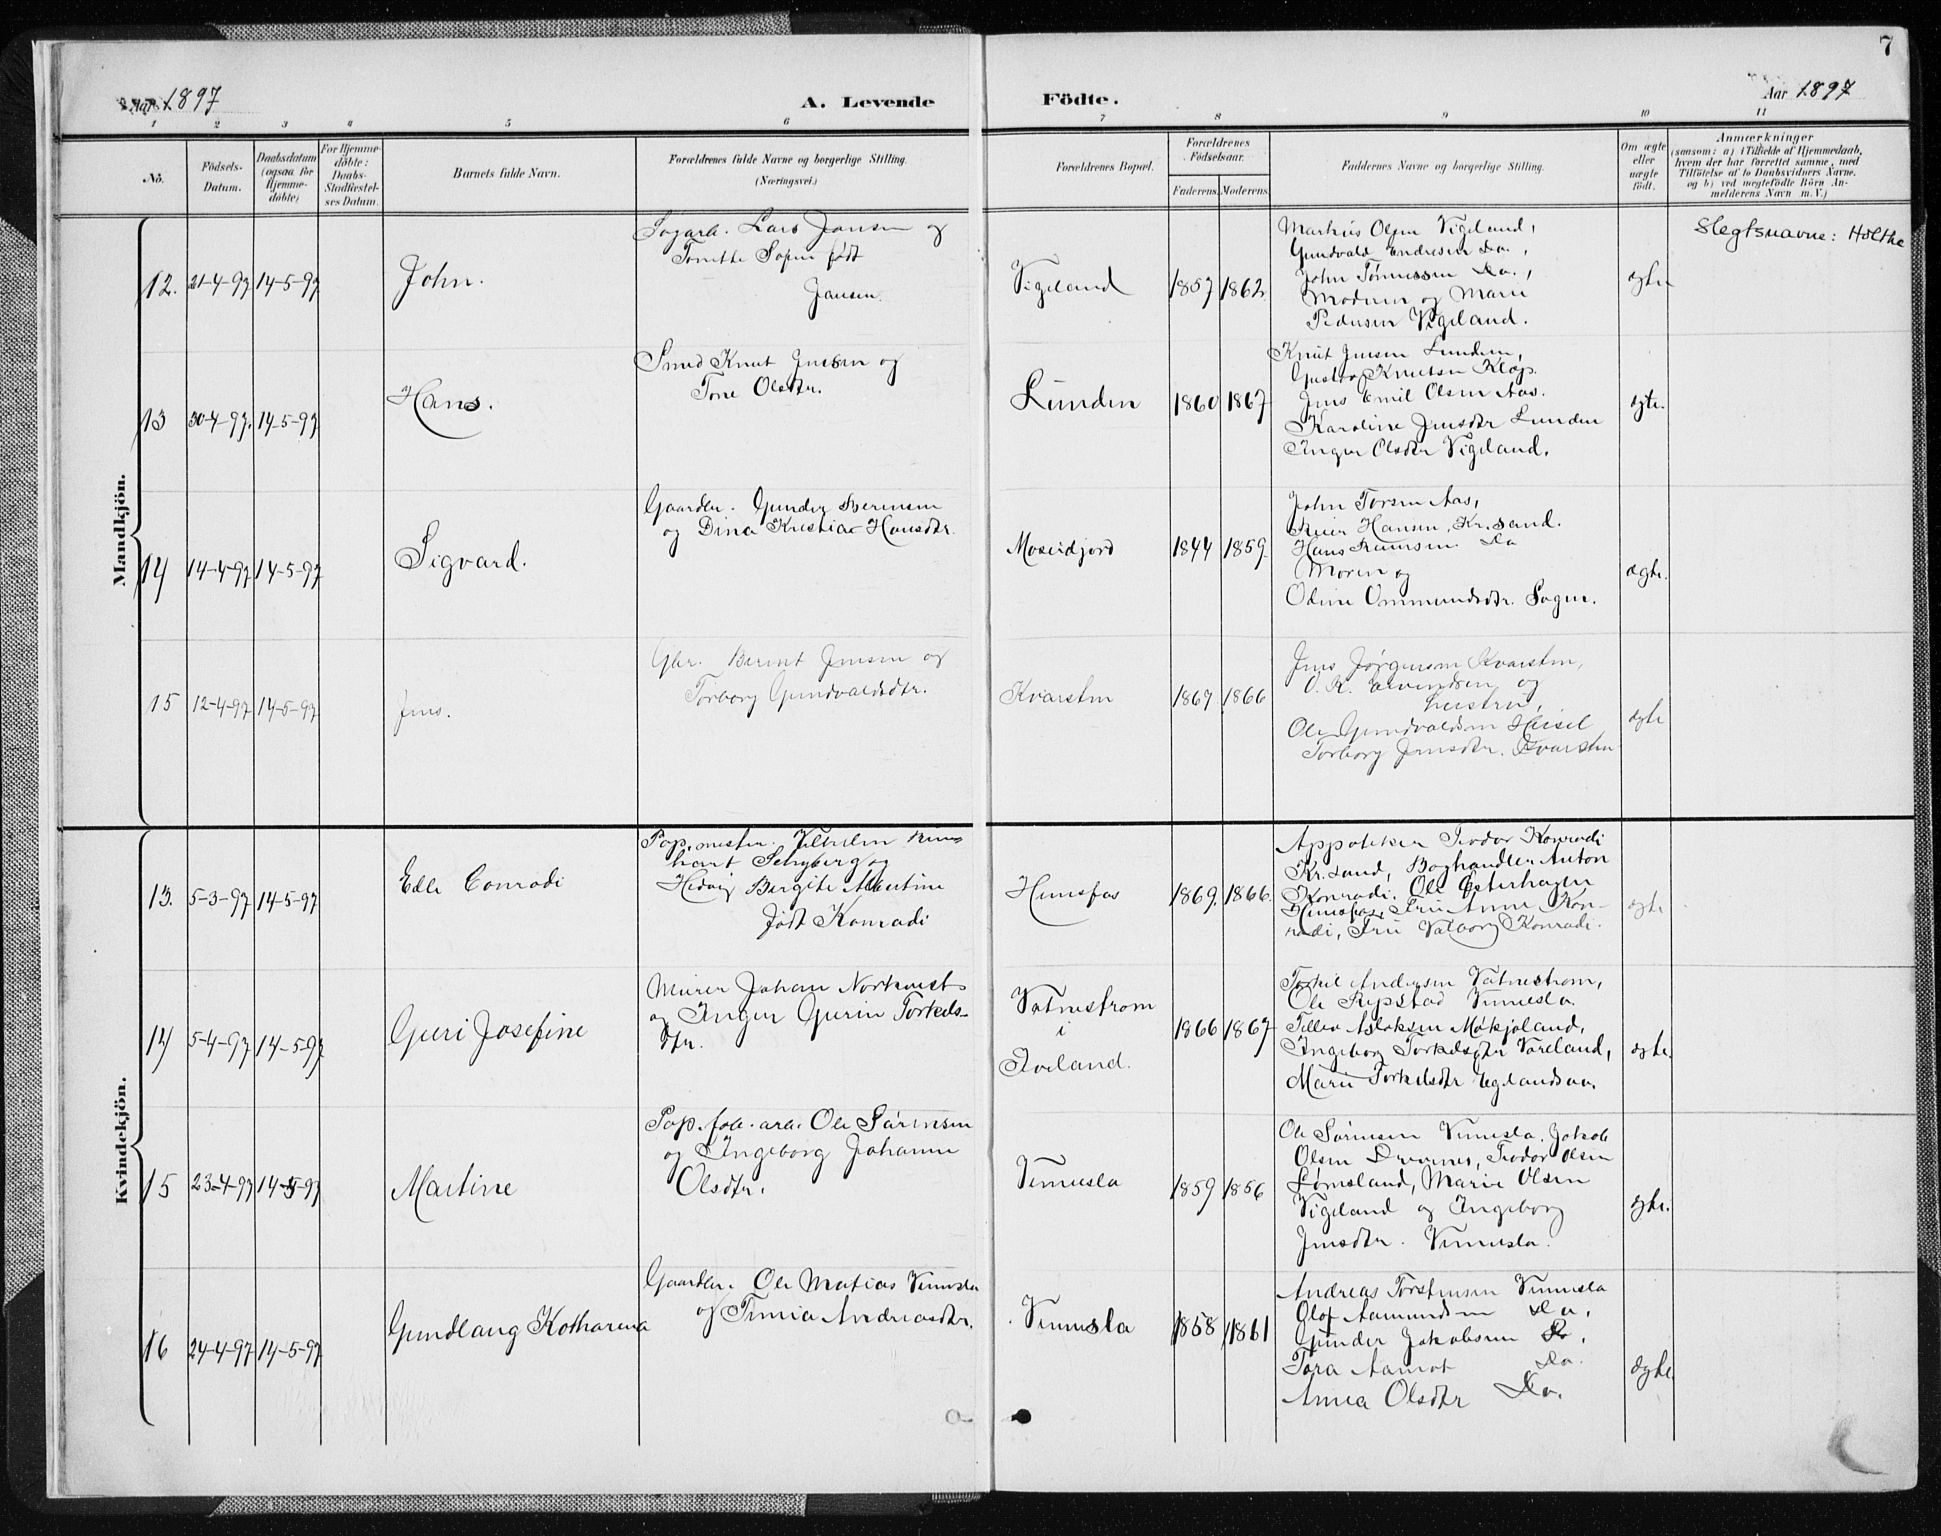 7
Aar 1897
A. Levende Födte.
Aar 1897
1 2 3 4 5 6 7 8 9 10 11
No.
Födsels-
Datum.
Daabsdatum
(ogsaa for
Hjemme-
döbte)
For Hjemme-
döbte:
Daabs-
Stadfæstel-
ses Datum.
Barnets fulde Navn.
Forældrenes fulde Navne og borgerlige Stilling.
(Næringsvei.)
Forældrenes Bopæl.
Forældrenes
Födselsaar.
Faderens.
Moderens.
Faddernes Navne og borgerlige Stilling.
Om ægte
eller
uægte
födt.
Anmærkninger
(saasom: a) i Tilfælde af Hjemmedaab,
hvem der har forrettet samme, med
Tilföielse af to Daabsvidners Navne.
og b) ved uægtefödte Börn An-
melderens Navn m. V.)
Mandkjön.
12. 21-4-97 14-5-97
John.
Sagarb. Lars Jansen og
Tomette Sofie født
Jansen.
Vigeland
1857 1862.
Markus Olsen Vigeland,
Gundvald Endresen Do.,
John Tønnessen Do.,
Moderen og Marie
Pedersen Vigeland.
ægte
Slegtsnavne: Holthe
13 30-4-97. 14-5-97
Hans.
Smed Knut Jensen og
Tone Olsdtr.
Lunden
1860 1867
Knut Jensen Lunden,
Gustav Knutsen Kløp.
Jens Emil Olsen Aas.
Karoline Jensdtr Lunden
Inger Olsdtr Vigeland.
ægte.
14 14-4-97 14-5-97
Sigvard.
Gaardbr. Gunder Berensen
og Dina Kristia Hansdtr.
Moseidjord
1844 1859.
John Torsen Aas,
Reier Hansen, Kr.sand.
Hans Reiersen Do
Moren og
Oline Ommundsdtr. Sagen.
ægte.
15 12-4-97 14-5-97
Jens.
Gbr. Berent Jensen og
Torborg Gundvaldsdtr.
Kvarsten
1867 1866
Jens Jørgensen Kvarsten,
O. K. Eivindsen og
hustru,
Ole Gundvaldsen Heisel
Torborg Jensdtr. Kvarsten
ægte
Kvindekjön.
13. 5-3-97 14-5-97
Edle Conradi
Pap.mester Vilhelm
Schyberg og
Hedvig Birgite Martine
født Konradi
Hunsfos
1869. 1866.
Appoteker Teodor Konradi
Kr.sand, Boghandler Anton
Konradi. Ole Østerhagen
Hunsfos, Fru Anna Kon-
radi, Fru Valborg Konradi.
ægte
14 5-4-97 14-5-97
Guri Josefine
Murer Johan Norkvist
og Inger Gurin Torkels-
dtr.
Vatnestrøm
i
Iveland.
1866 1867
Torkel Andersen Vatnestrøm,
Ole Ripstad Vennesla
Tellev Aslaksen Møkjåland,
Ingeborg Torkelsdtr Vareland,
Marie Torkelsdtr Eglandsaa.
ægte.
15 23-4-97 14-5-97
Martine
Pap.fab.arb. Ole Sørensen
og Ingeborg Johanne
Olsdtr.
Vennesla
1859 1856
Ole Sørensen Vennesla. Jakob
Olsen Drivenes, Teodor Olsen
Lømsland, Marie Olsen
Vigeland og Ingeborg
Jensdtr. Vennesla.
ægte.
16 24-4-97 14-5-97
Gundlaug Katharina
Gaardbr. Ole Matias Vennesla
og Tomia Andreasdtr.
Vennesla
1858 1861
Andreas Torstensen Vennesla
Olaf Aamundsen Do,
Gunder Jakobsen Do,
Tora Aamot Do.
Anna Olsdtr Do.
ægte.